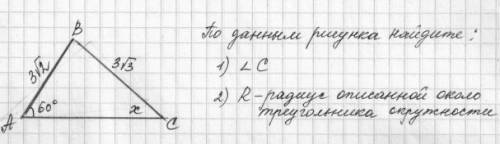 B
По данным рисунка найдите:
3√2
3√3
1) ∠ C
2) R – радиус описанной около
треугольника окружности
60°
x
A
C